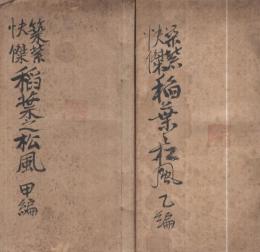 築紫
快傑
稲葉之松風 甲編
築紫
快傑
稲葉之松風 乙編